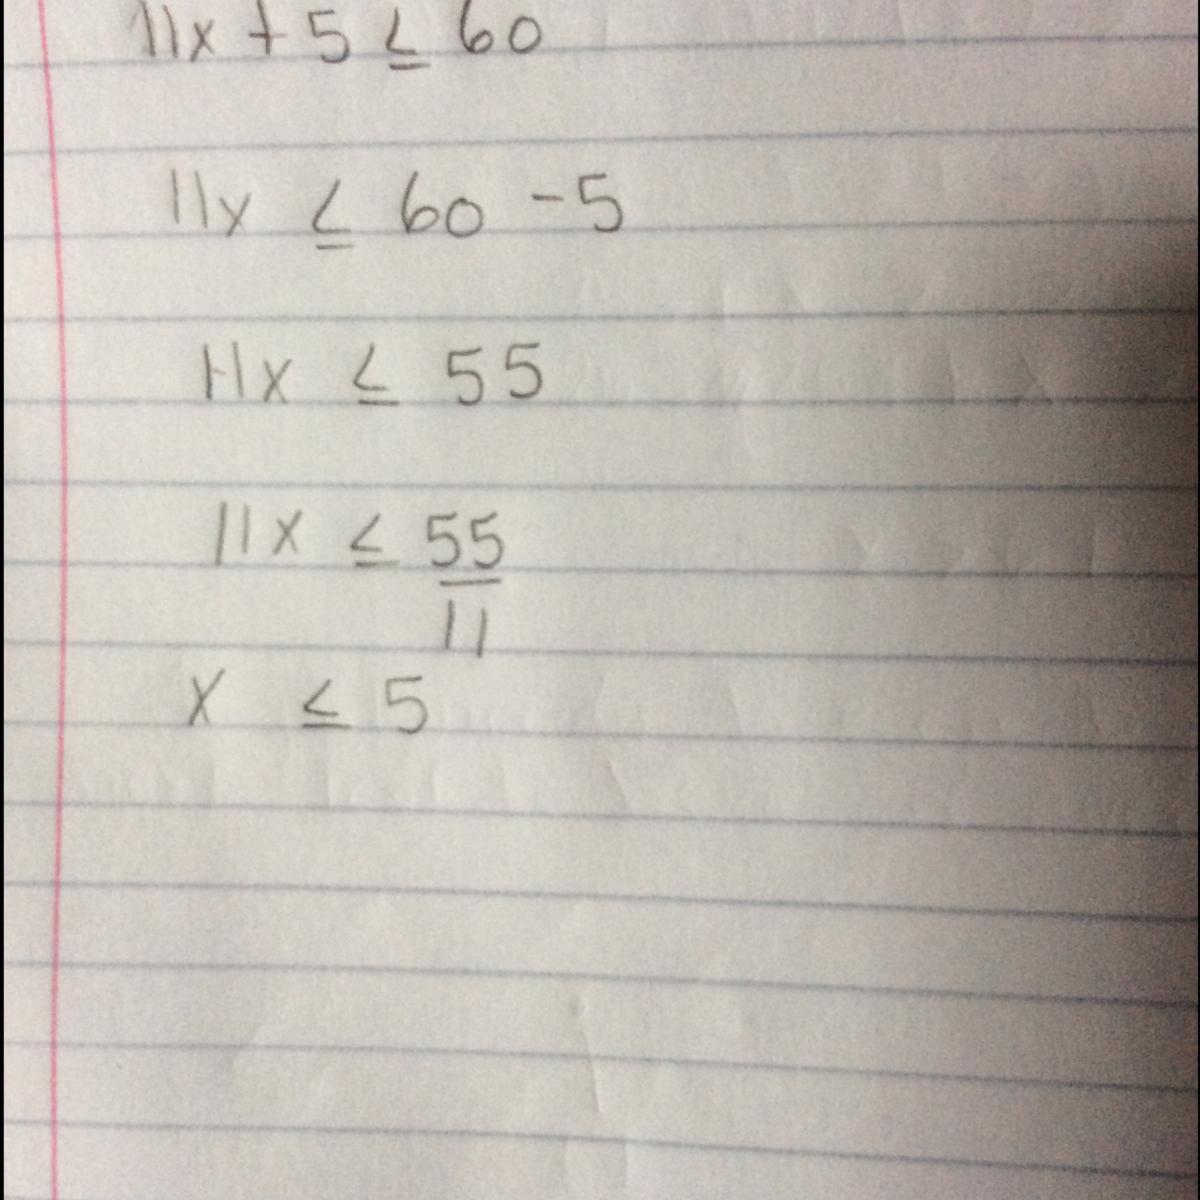 11x + 5 ≤ 60
11x ≤ 60 - 5
11x ≤ 55
11x ≤ 55
11
x ≤ 5